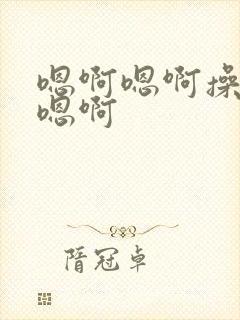 嗯啊嗯啊操
嗯啊
隋冠卓